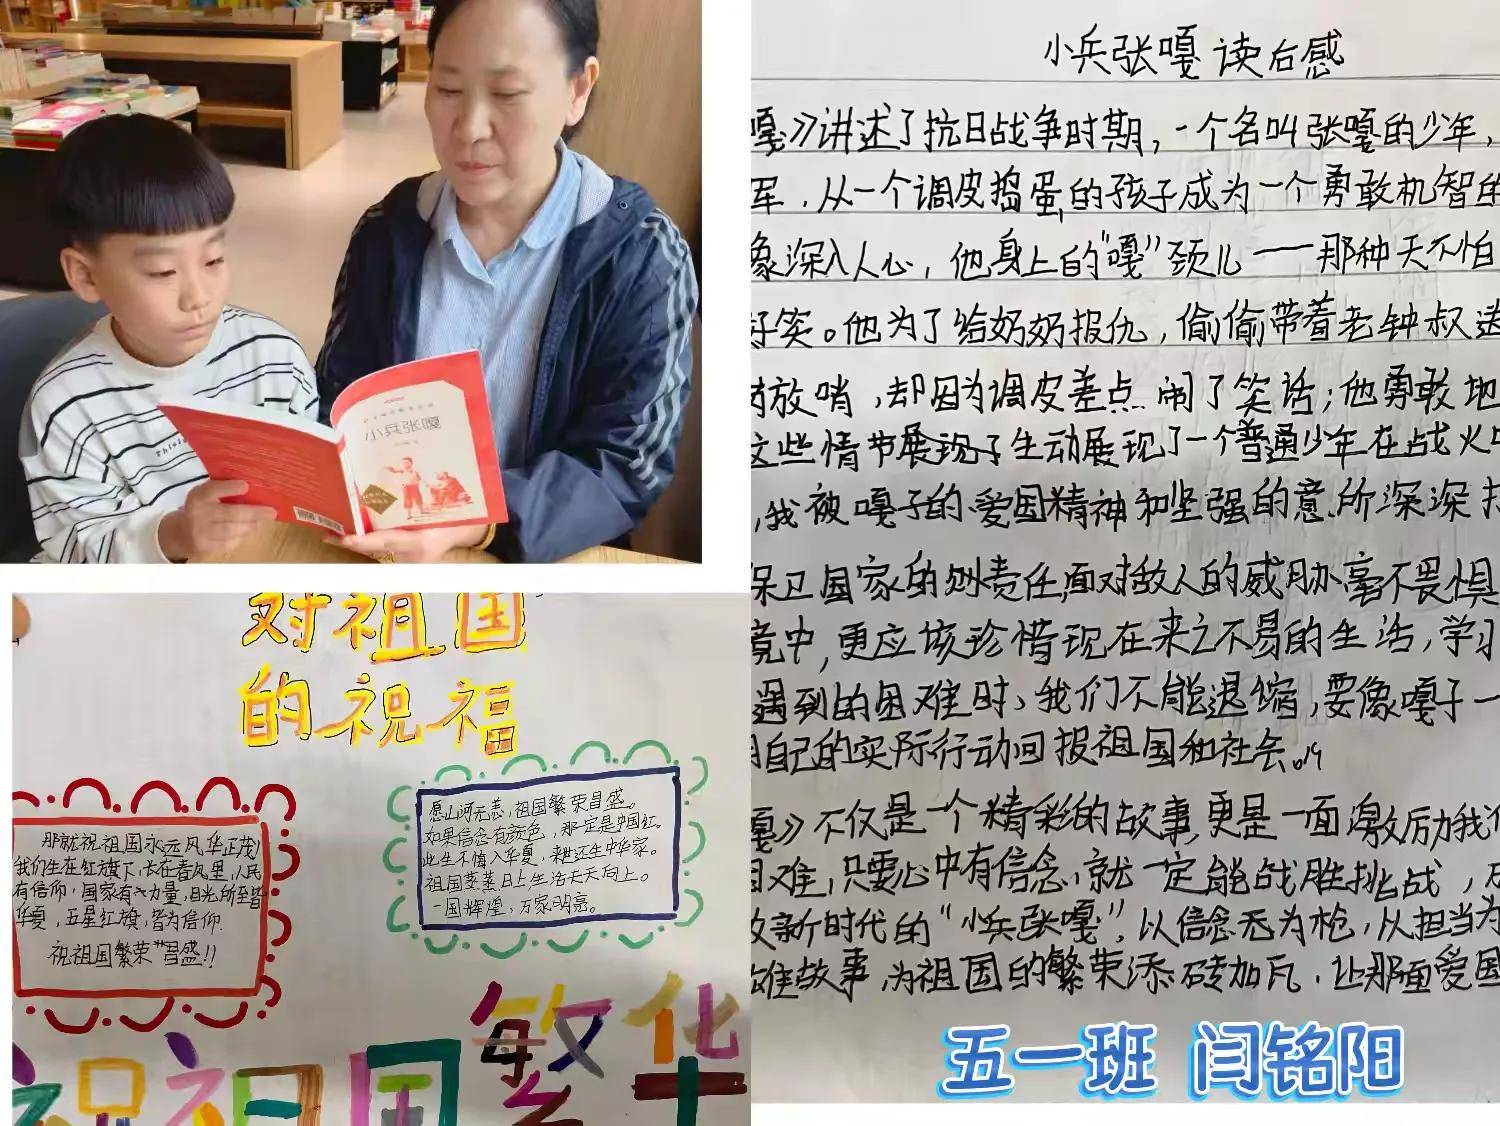 小兵张嘎
Think
对祖国
的祝福
那就祝祖国永远风华正茂
我们生在红旗下,长在春风里,人民
有信仰,国家有力量,目光所至皆
华夏,五星红旗,皆为信仰.
祝祖国繁荣昌盛!!
愿山河无恙,祖国繁荣昌盛。
如果信念有颜色,那一定是中国红。
此生不悔入华夏,来世还生中华家。
祖国蒸蒸日上,生活天天向上。
一国辉煌,万家明亮。
祝祖国繁华
小兵张嘎读后感
嘎》讲述了抗日战争时期,一个名叫张嘎的少年,
军,从一个调皮捣蛋的孩子成为一个勇敢机智的
象深入人心,他身上的“嘎”颈儿——那种天不怕
好笑。他为了给奶奶报仇,偷偷带着老钟叔送
放哨,却因为调皮差点闹了笑话;他勇敢地
这些情节展现了生动展现了一个普通少年在战火中
,我被嘎子的爱国精神和坚强的意所深深打
保卫国家的责任,面对敌人的威胁毫不畏惧
境中,更应该珍惜现在来之不易的生活,学习
遇到的困难时,我们不能退缩,要像嘎子一
用自己的实际行动回报祖国和社会。
嘎》不仅是一个精彩的故事,更是一面激励我们
困难,只要心中有信念,就一定能战胜挑战,
做新时代的“小兵张嘎”,以信念无为枪,从担当为
雄故事,为祖国的繁荣添砖加瓦,让那面爱国
五一班 闫铭阳